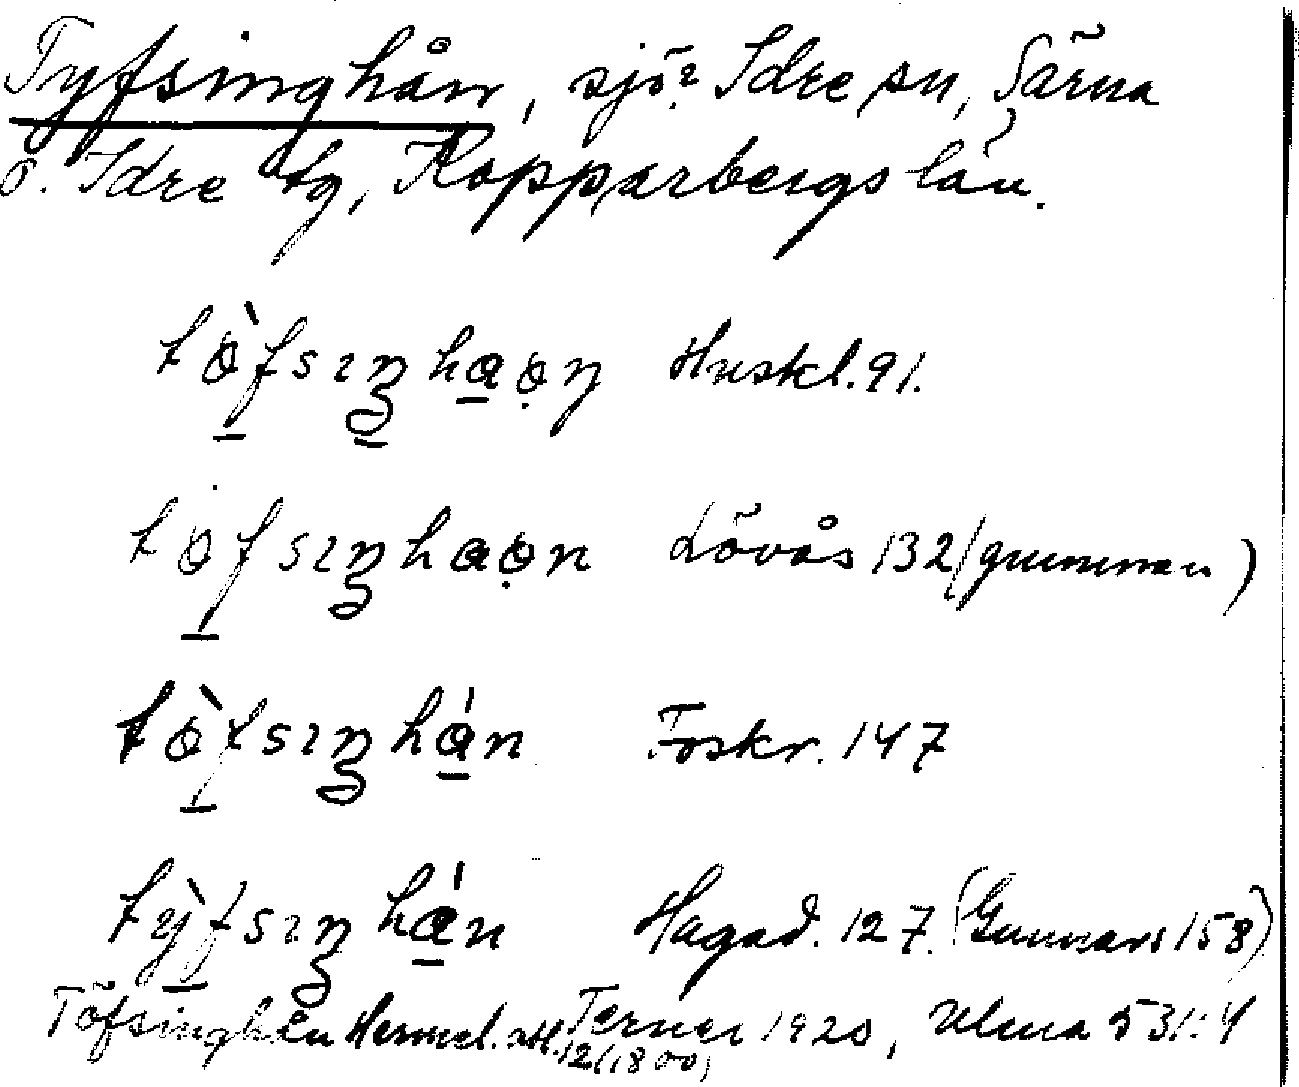 Tyfsinghån, sjö? Idre sn, Särna
o. Idre tg, Kopparbergs län.
tòfsıŋhaọn Huskl. 91.
tofsıŋhaọn Lövås 132 (gumman)
tòfsıŋhán Foskr. 147
tỳfsıŋhán Hagad. 127. (Gunnars 158)
Töfsinghån Hermel. atl. Terner 1920, Ulma 531:4
12 (1800)